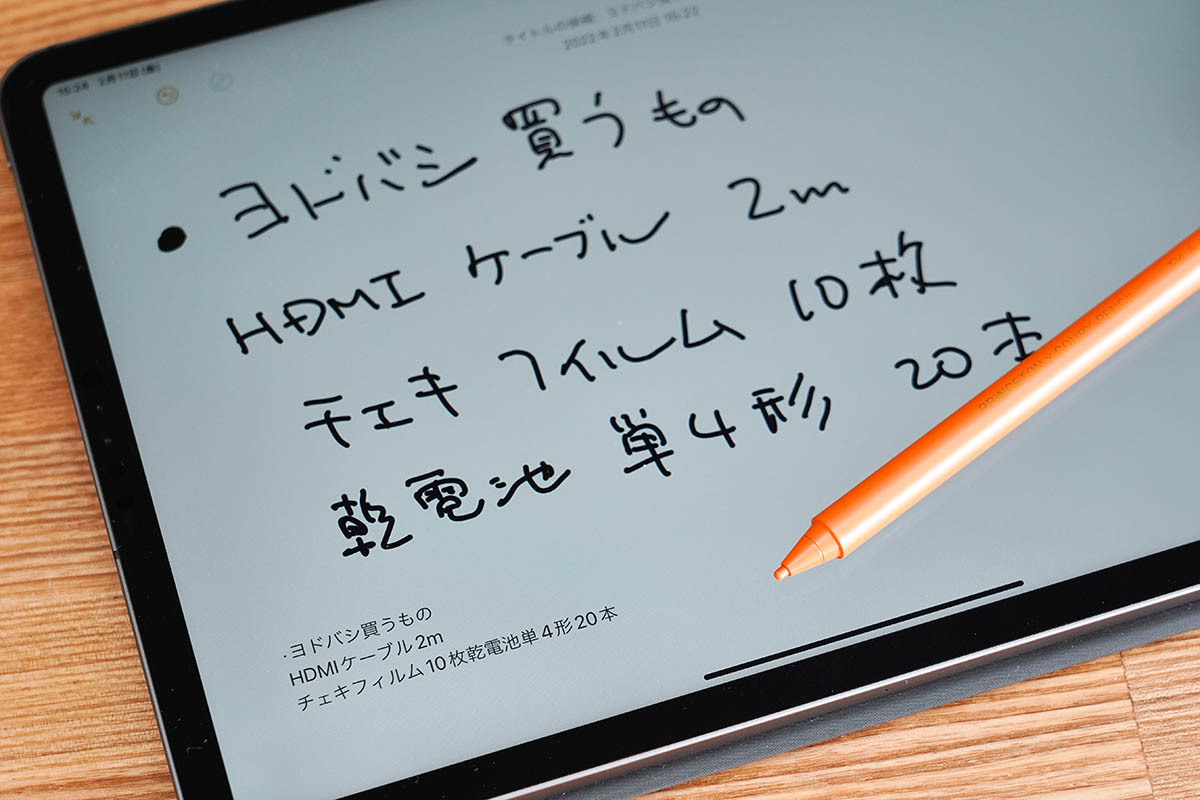 15:24 2月11日(金)
2022年2月11日 15:22
● ヨドバシ 買うもの
HDMI ケーブル 2m
チェキ フィルム 10枚
乾電池 単4形 20本
PRINCETON
.ヨドバシ買うもの
HDMIケーブル2m
チェキフィルム10枚乾電池単4形20本